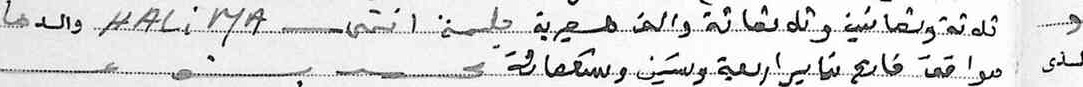 ثلاثة وثمانين وثلاثمائة والف هجرية حليمة انثى HALiMA والدها و
موافق فاتح يناير اربعة وستين وتسعمائة لدى